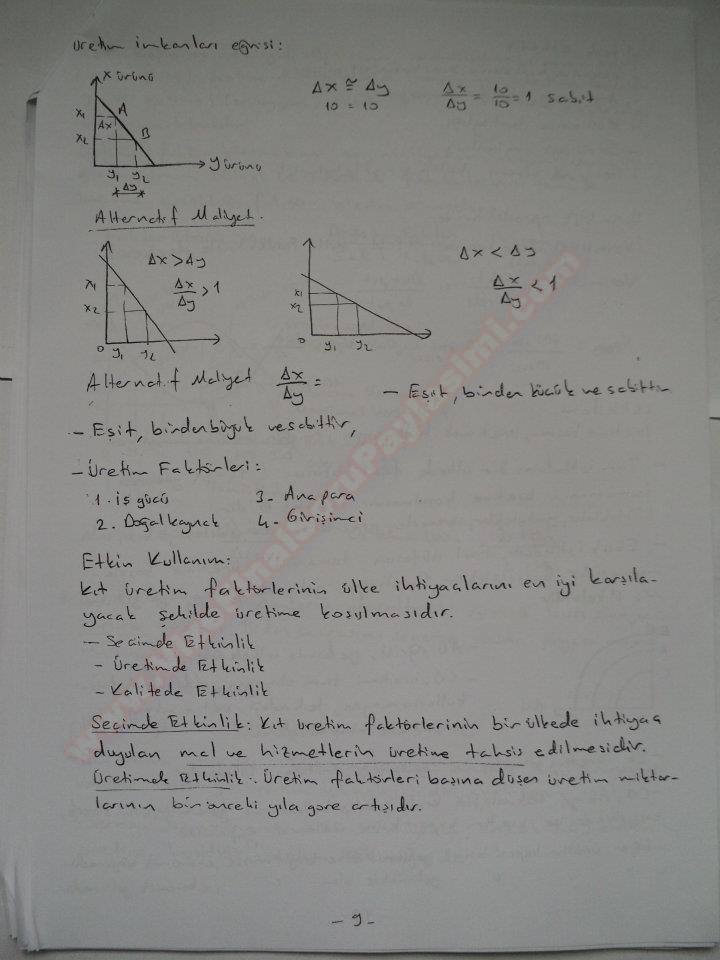 Üretim imkanları eğrisi:
x ürünü
x1
A
Δx
x2
B
y1 y2
y ürünü
Δy
Δx ≅ Δy
10 = 10
Δx/Δy = 10/10 = 1 sabit
Alternatif Maliyet.
Δx > Δy
Δx/Δy > 1
x1
x2
0 y1 y2
x1
x2
0 y1 y2
Δx < Δy
Δx/Δy < 1
Alternatif Maliyet Δx/Δy =
- Eşit, birden küçük ve sabittir
- Eşit, birden büyük ve sabittir,
- Üretim Faktörleri:
1. iş gücü 3- Ana para
2. Doğal kaynak 4- Girişimci
Etkin Kullanım:
Kıt üretim faktörlerinin ülke ihtiyaçlarını en iyi karşıla-
yacak şekilde üretime koşulmasıdır.
- Seçimde Etkinlik
- Üretimde Etkinlik
- Kalitede Etkinlik
Seçimde Etkinlik: Kıt üretim faktörlerinin bir ülkede ihtiyaç
duyulan mal ve hizmetlerin üretime tahsis edilmesidir.
Üretimde Etkinlik: Üretim faktörleri başına düşen üretim miktar-
larının bir önceki yıla göre artışıdır.
- 9 -